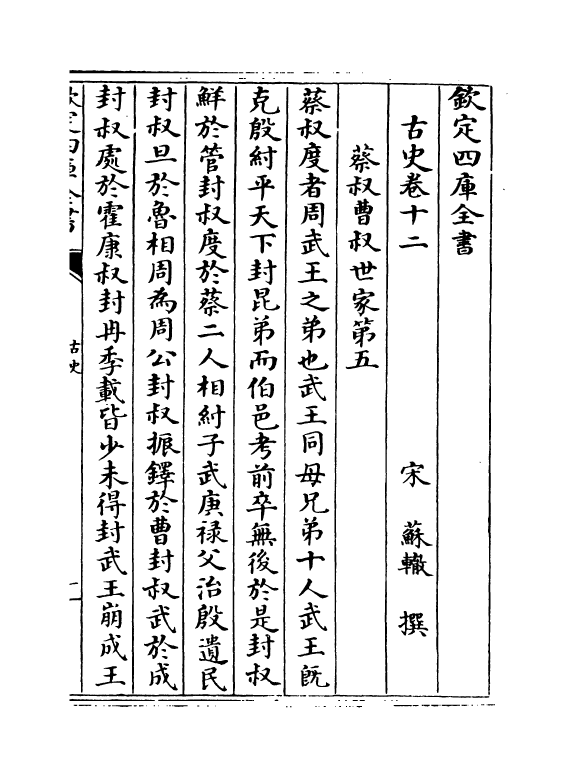 欽定四庫全書
古史卷十二　　　　　宋　蘇轍　撰
蔡叔曹叔世家第五
蔡叔度者周武王之弟也武王同母兄弟十人武王既
克殷紂平天下封昆弟而伯邑考前卒無後於是封叔
鮮於管封叔度於蔡二人相紂子武庚祿父治殷遺民
封叔旦於魯相周為周公封叔振鐸於曹封叔武於成
封叔處於霍康叔封冉季載皆少未得封武王崩成王
欽定四庫全書
古史
一